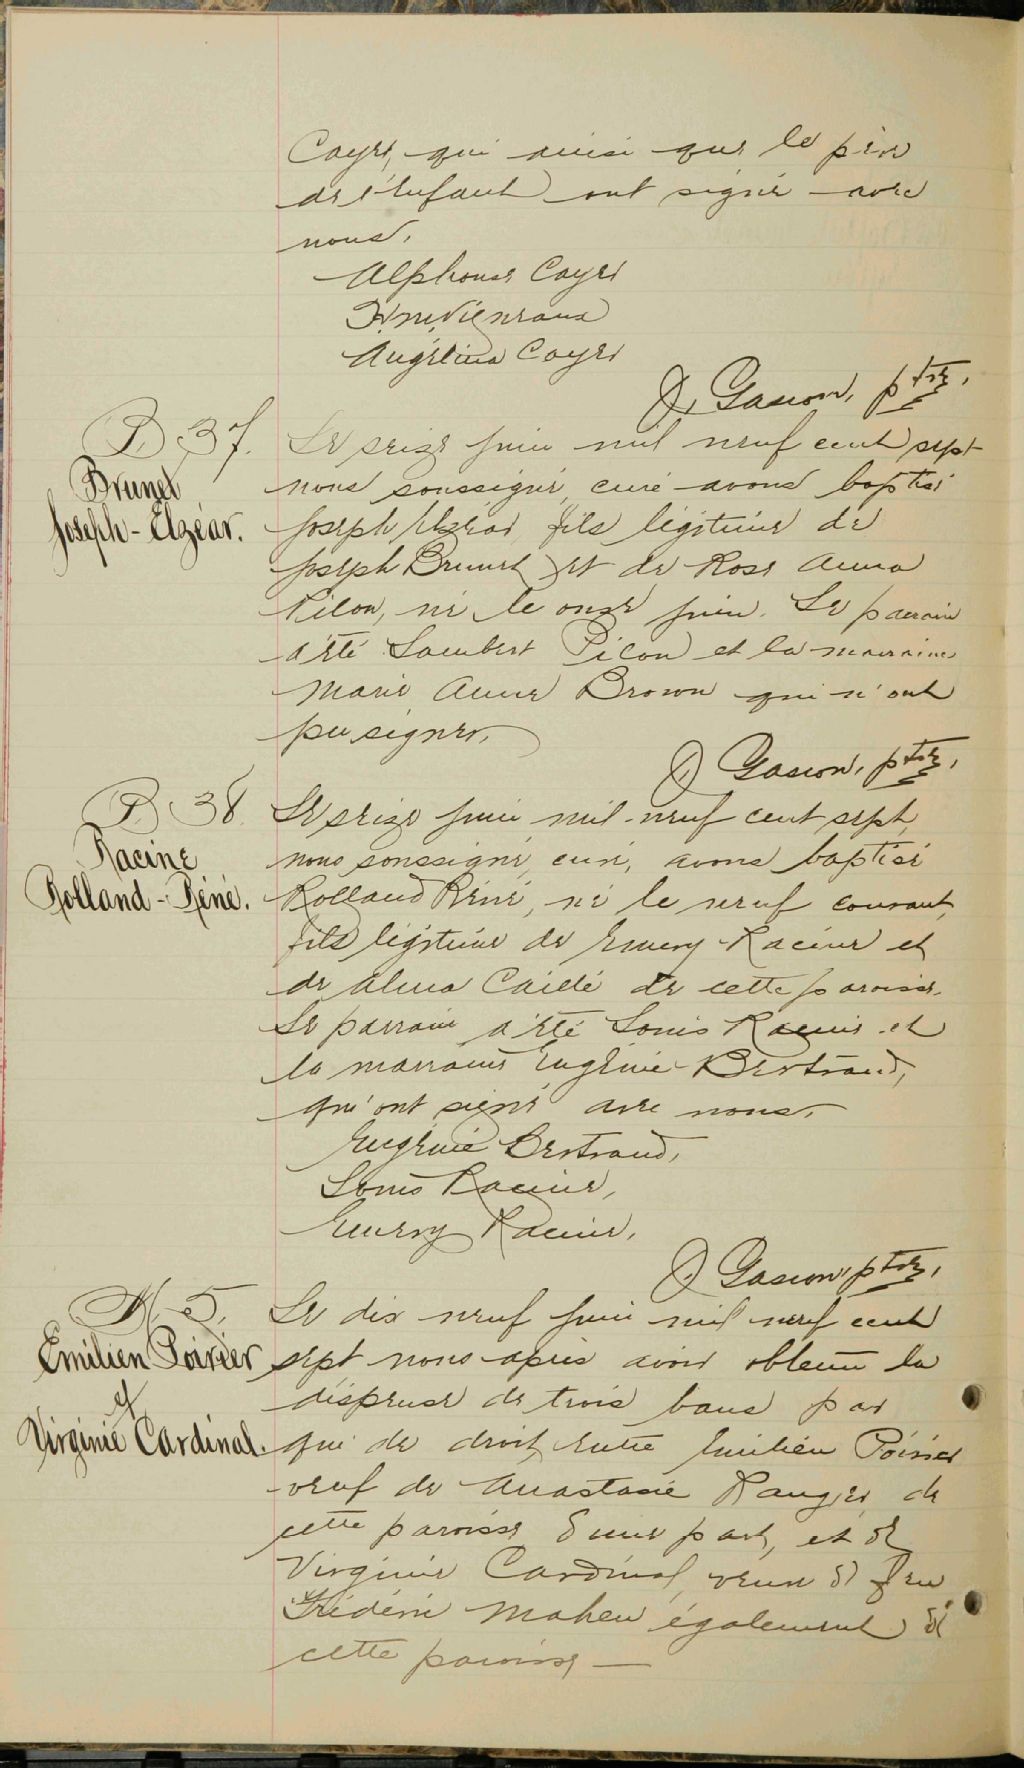 Cayer, qui ainsi que le père
de l'enfant ont signé avec
nous.
Alphonse Cayer
Angélina Cayer
J. Gascon, ptre,
B. 37.
Brunet
Joseph-Elzéar.
Le seize juin mil neuf cent sept
nous soussigné, curé avons baptisé
Joseph Elzéar, fils légitime de
Joseph Brunet et de Rose Anna
Pilon, né le onze juin. Le parrain
a été Lambert Pilon et la marraine
Marie Anne Brown qui n'ont
pu signer.
J. Gascon, ptre,
B. 38.
Racine
Rolland-Réné.
Le seize juin mil neuf cent sept,
nous soussigné, curé, avons baptisé
Rolland Réné, né le neuf courant,
fils légitime de Emery Racine et
de Alma Caillé de cette paroisse.
Le parrain a été Louis Racine et
la marraine Eugénie Bertrand,
qui ont signé avec nous.
Eugénie Bertrand,
Louis Racine,
Emery Racine.
J. Gascon, ptre,
M 5.
Emilien Poirier
et
Virginie Cardinal.
Le dix neuf juin mil neuf cent
sept nous après avoir obtenu la
dispense de trois bans par
qui de droit, entre Emilien Poirier
veuf de Anastasie Ranger, de
cette paroisse d'une part, et de
Virginie Cardinal, veuve de feu
Frédéric Maheu également de
cette paroisse —